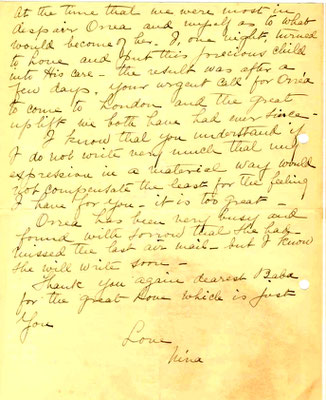 at the time that we were most in
despair Orréa and myself as to what
would become of her. I, one night, turned
to Love and put this precious child
into His care - the result was after a
few days, your urgent call for Orréa
to come to London and the great
uplift we both have had ever since -
I know that you understand if
I do not write very much that my
expression in a material way would
not compensate the least for the feeling
I have for you - it is too great -
Orréa has been very busy and
found with sorrow that she had
missed the last air mail - but I know
she will write soon -
Thank you again dearest Baba
for the great Love which is just
You
Love
Nina